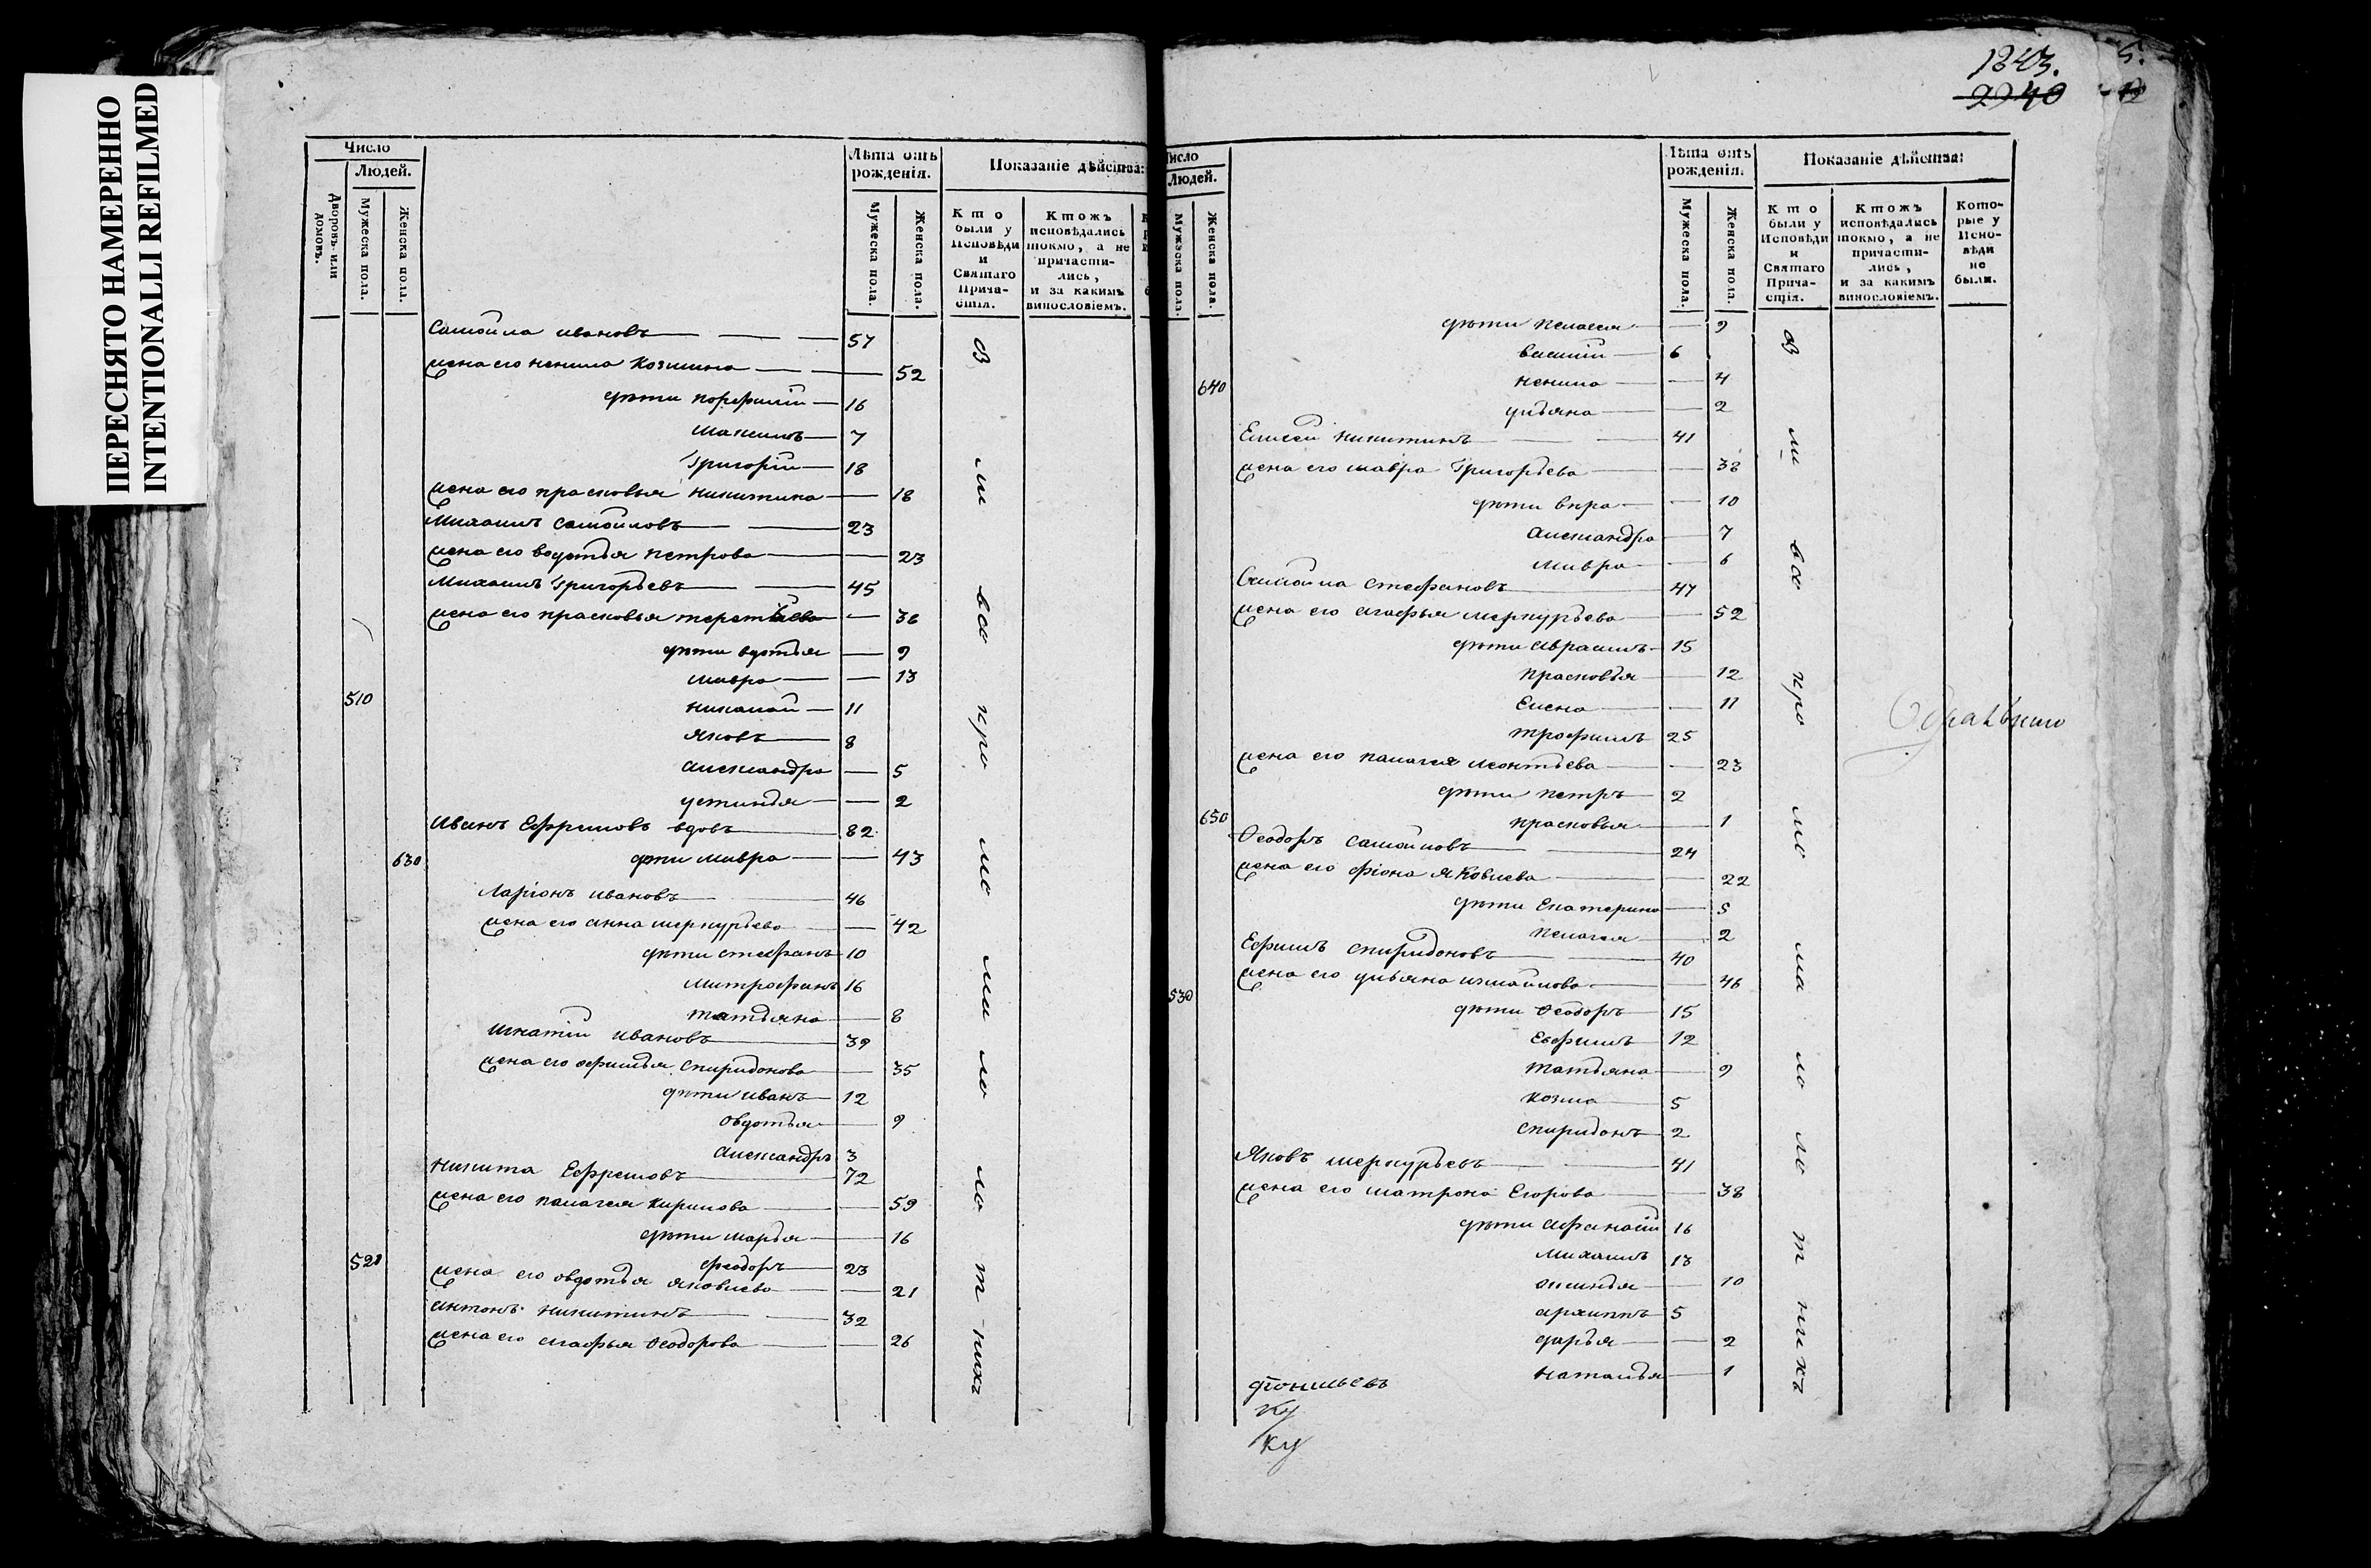 ПЕРЕСНЯТО НАМЕРЕННО
INTENTIONALLI REFILMED
Число
Людей.
Дворовъ или домовъ.
Мужеска пола.
Женска пола.
Лѣта отъ рожденія.
Мужеска пола.
Женска пола.
Показаніе дѣйства:
Кто были у Исповѣди и Святаго Прича-стія.
Ктожъ исповѣдались токмо, а не причасти-лись, и за какимъ винословіемъ.
Самойла ивановъ 57
жена его ненила Козмина 52
дѣти порфилій 16
максимъ 7
Григорій 18
жена его прасковья никитина 18
Михаилъ самойловъ 23
жена его водотья петрова 23
Михаилъ Григорьевъ 45
жена его прасковья терентьева 36
дѣти вдотья 9
мавра 13
510 николай 11
яковъ 8
александра 5
устинья 2
Иванъ Ефремовъ вдовъ 82
630 дѣти мавра 43
Ларіонъ ивановъ 46
жена его анна меркурьева 42
дѣти стефанъ 10
митрофанъ 16
татьяна 8
игнатій ивановъ 39
жена его офимья спиридонова 35
дѣти иванъ 12
овдотья 9
александръ 3
никита Ефремовъ 72
жена его палагея кирилова 59
дѣти марья 16
520 феодоръ 23
жена его овдотья яковлева 21
антонъ никитинъ 32
жена его агафья Ѳеодорова 26
1343.
2240
5.
12
Число
Людей.
Мужеска пола.
Женска пола.
Лѣта отъ рожденія.
Мужеска пола.
Женска пола.
Показаніе дѣйства:
Кто были у Исповѣди и Святаго Прича-стія.
Ктожъ исповѣдались токмо, а не причасти-лись, и за какимъ винословіемъ.
Кото-рые у Испо-вѣди не были.
дѣти пелагея 9
василій 6
640 ненила 4
ульяна 2
Елисей никитинъ 41
жена его мавра Григорьева 38
дѣти вѣра 10
александра 7
мавра 6
Самойла стефановъ 47
жена его агафья меркурьева 52
дѣти авраамъ 15
прасковья 12
Елена 11
трофимъ 25
жена его палагея леонтьева 23
дѣти петръ 2
650 прасковья 1
Ѳеодоръ самойловъ 24
жена его фіона яковлева 22
дѣти Екатерина 5
пелагея 2
Ефимъ спиридоновъ 40
жена его ульяна измайлова 46
530 дѣти Ѳеодоръ 15
Евфимъ 12
татьяна 9
козма 5
спиридонъ 2
Яковъ меркурьевъ 41
жена его матрона Егорова 38
дѣти афанасій 16
михаилъ 13
акинья 10
архиппъ 5
дарья 2
наталья 1
ку
ку